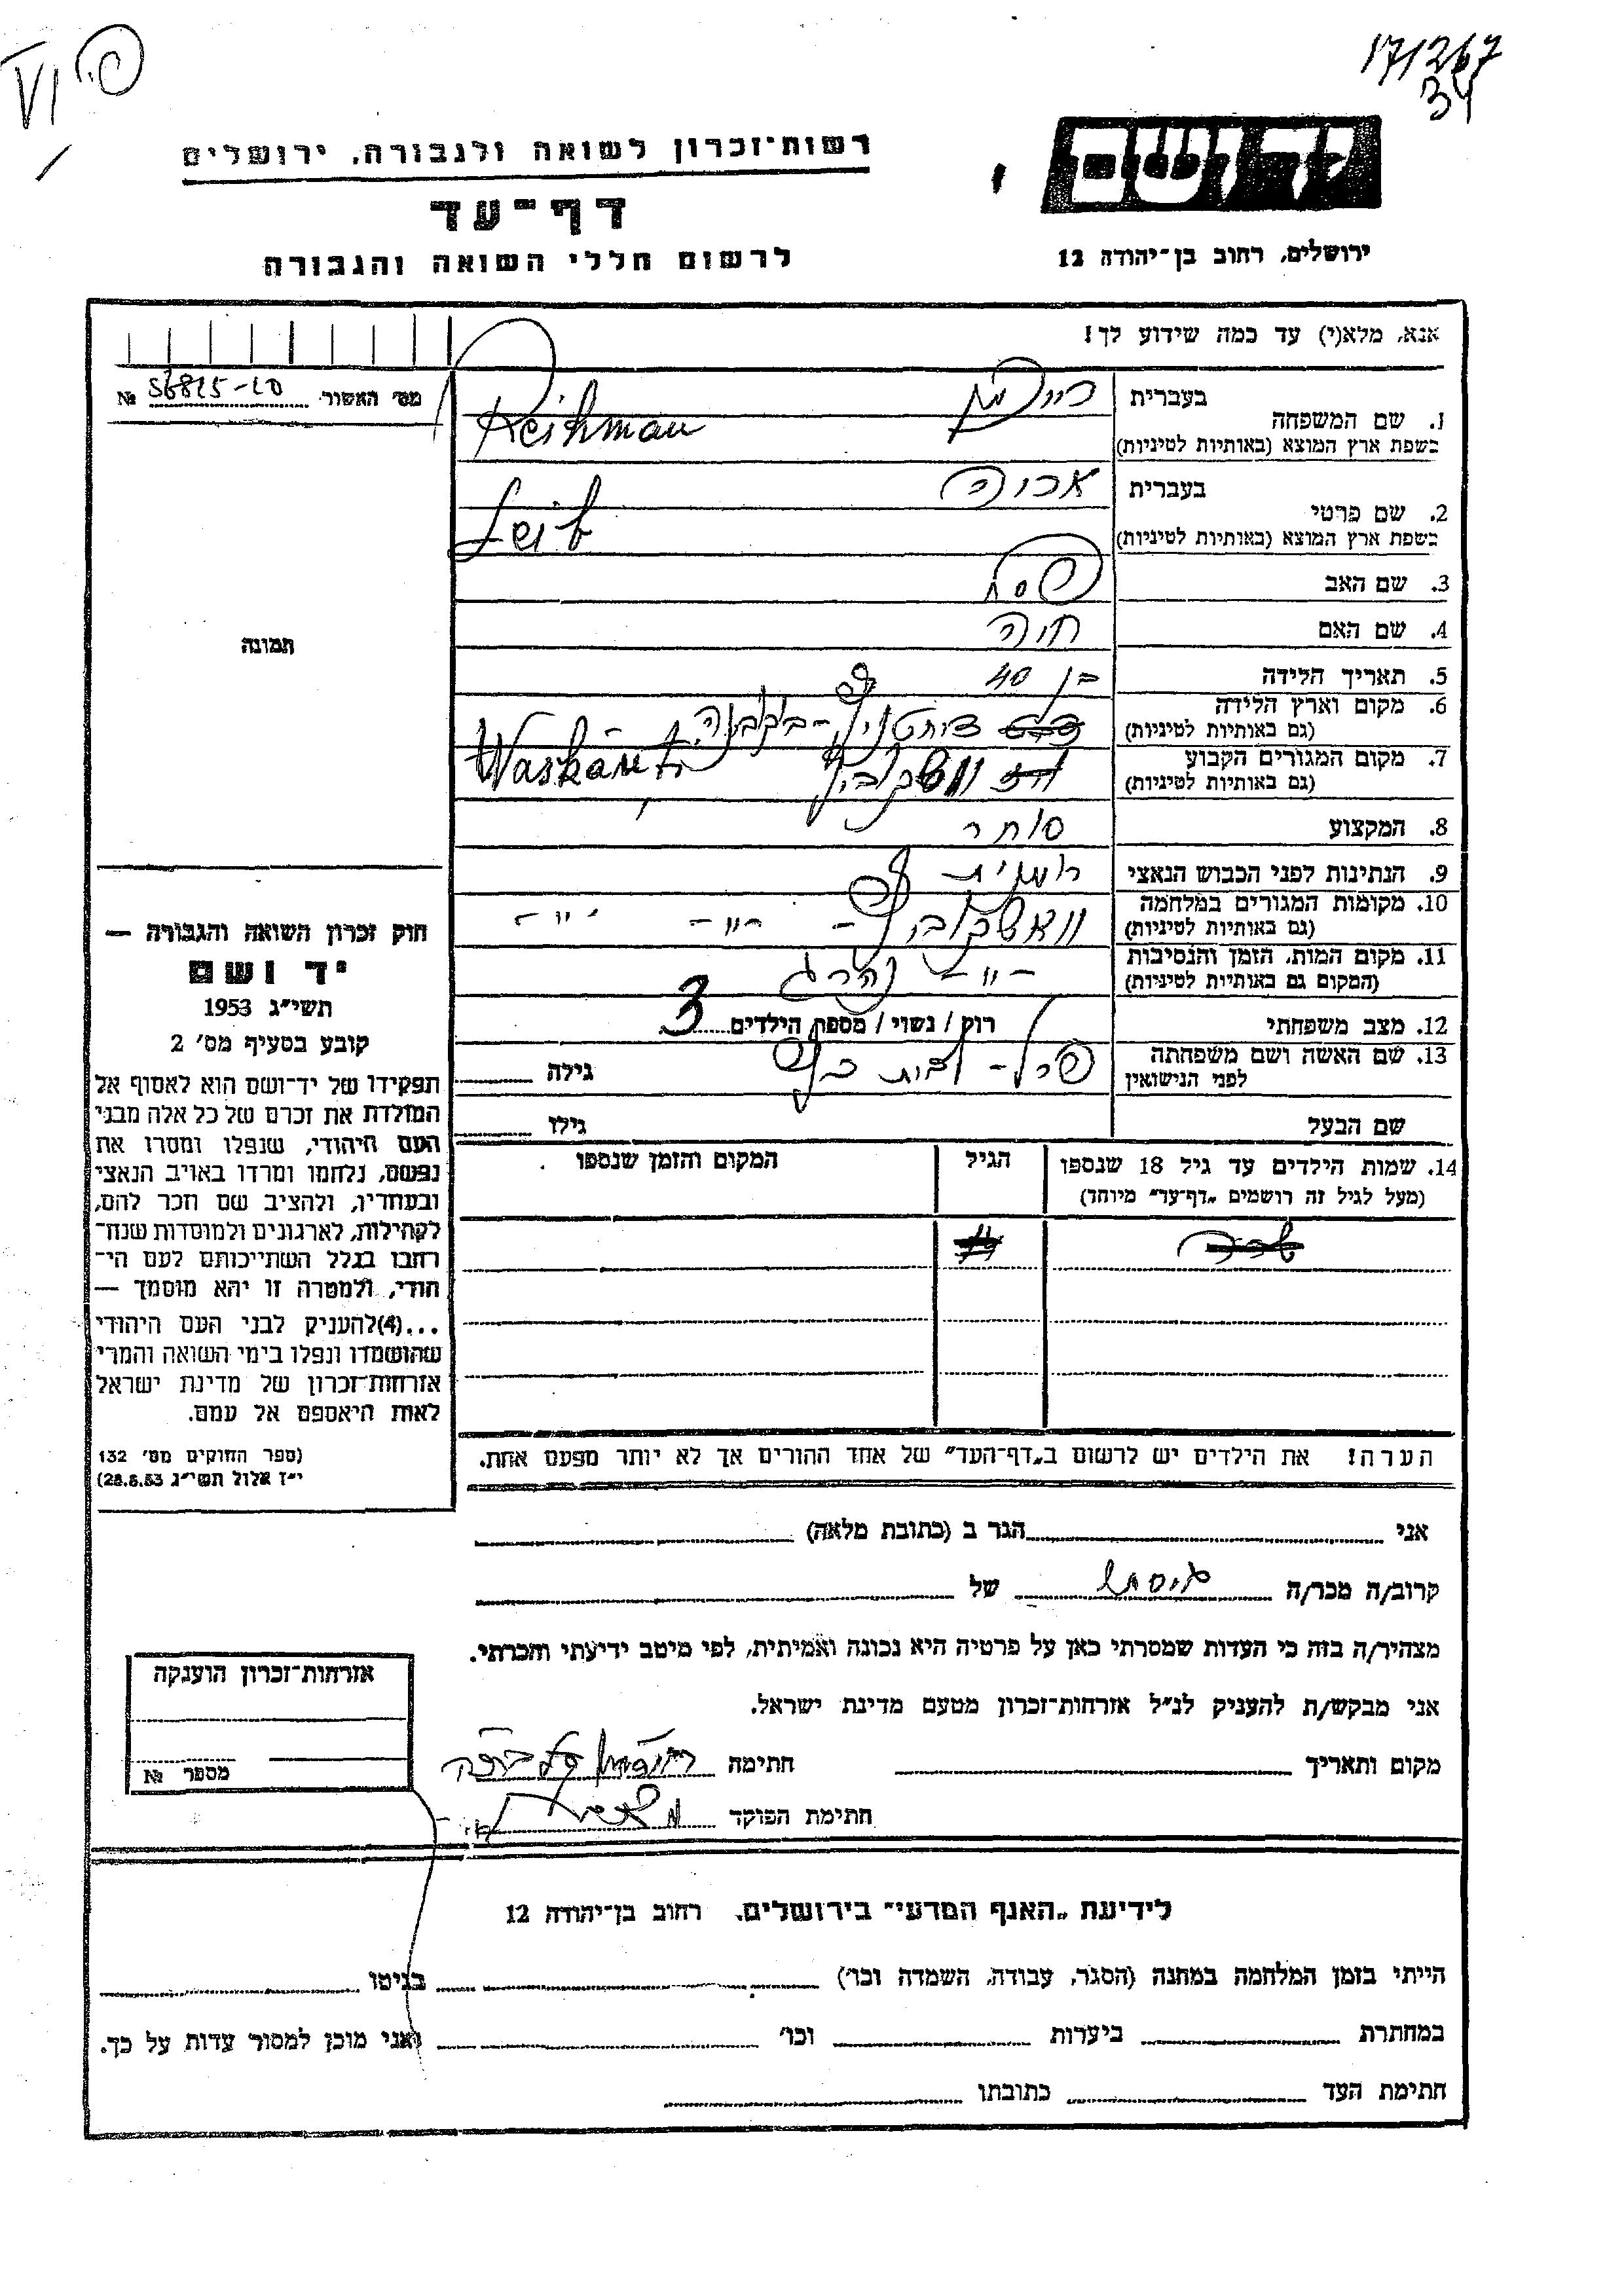 171267
34
פ. VI
יד ושם
רשות־זכרון לשואה ולגבורה, ירושלים
דף־עד
לרשום חללי השואה והגבורה
ירושלים, רחוב בן־יהודה 12
אנא, מלא(י) עד כמה שידוע לך!
מס׳ האשור № 56815-20
1. שם המשפחה
בעברית
בשפת ארץ המוצא (באותיות לטיניות) Reihman
2. שם פרטי
בעברית
בשפת ארץ המוצא (באותיות לטיניות) Leib
3. שם האב פסח
4. שם האם חיה
5. תאריך הלידה בן 40
6. מקום וארץ הלידה
(גם באותיות לטיניות)
7. מקום המגורים הקבוע
(גם באותיות לטיניות) Waskáuti
8. המקצוע סוחר
9. הנתינות לפני הכבוש הנאצי רומנית
10. מקומות המגורים במלחמה
(גם באותיות לטיניות) - -״- -״-
11. מקום המות, הזמן והנסיבות
(המקום גם באותיות לטיניות) -״- נהרג
12. מצב משפחתי רוק / נשוי / מספר הילדים 3
13. שם האשה ושם משפחתה
לפני הנישואין גילה
שם הבעל גילו
14. שמות הילדים עד גיל 18 שנספו
(מעל לגיל זה רושמים „דף־עד״ מיוחד)
הגיל
המקום והזמן שנספו
הערה! את הילדים יש לרשום ב„דף־העד״ של אחד ההורים אך לא יותר מפעם אחת.
תמונה
חוק זכרון השואה והגבורה —
יד ושם
תשי״ג 1953
קובע בסעיף מס׳ 2
תפקידו של יד־ושם הוא לאסוף אל
המולדת את זכרם של כל אלה מבני
העם היהודי, שנפלו ומסרו את
נפשם, נלחמו ומרדו באויב הנאצי
ובעוזריו, ולהציב שם וזכר להם,
לקהילות, לארגונים ולמוסדות שנח־
רבו בגלל השתייכותם לעם הי־
הודי, ולמטרה זו יהא מוסמך —
...(4)להעניק לבני העם היהודי
שהושמדו ונפלו בימי השואה והמרי
אזרחות־זכרון של מדינת ישראל
לאות היאספם אל עמם.
(ספר החוקים מס׳ 132
י״ז אלול תשי״ג 28.8.53)
אני הגר ב (כתובת מלאה)
קרוב/ה מכר/ה של
מצהיר/ה בזה כי העדות שמסרתי כאן על פרטיה היא נכונה ואמיתית, לפי מיטב ידיעתי והכרתי.
אני מבקש/ת להעניק לנ״ל אזרחות־זכרון מטעם מדינת ישראל.
מקום ותאריך חתימה
חתימת הפוקד
אזרחות־זכרון הוענקה
מספר №
לידיעת „האגף המדעי״ בירושלים, רחוב בן־יהודה 12
הייתי בזמן המלחמה במחנה (הסגר, עבודה, השמדה וכו׳) בגיטו
במחתרת ביערות וכו׳ ואני מוכן למסור עדות על כך.
חתימת העד כתובתו